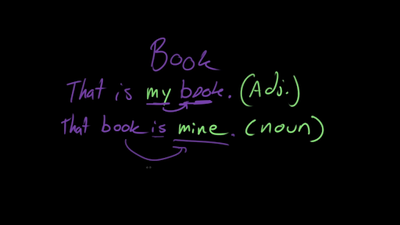 Book
That is my book. (Adj.)
That book is mine. (noun)